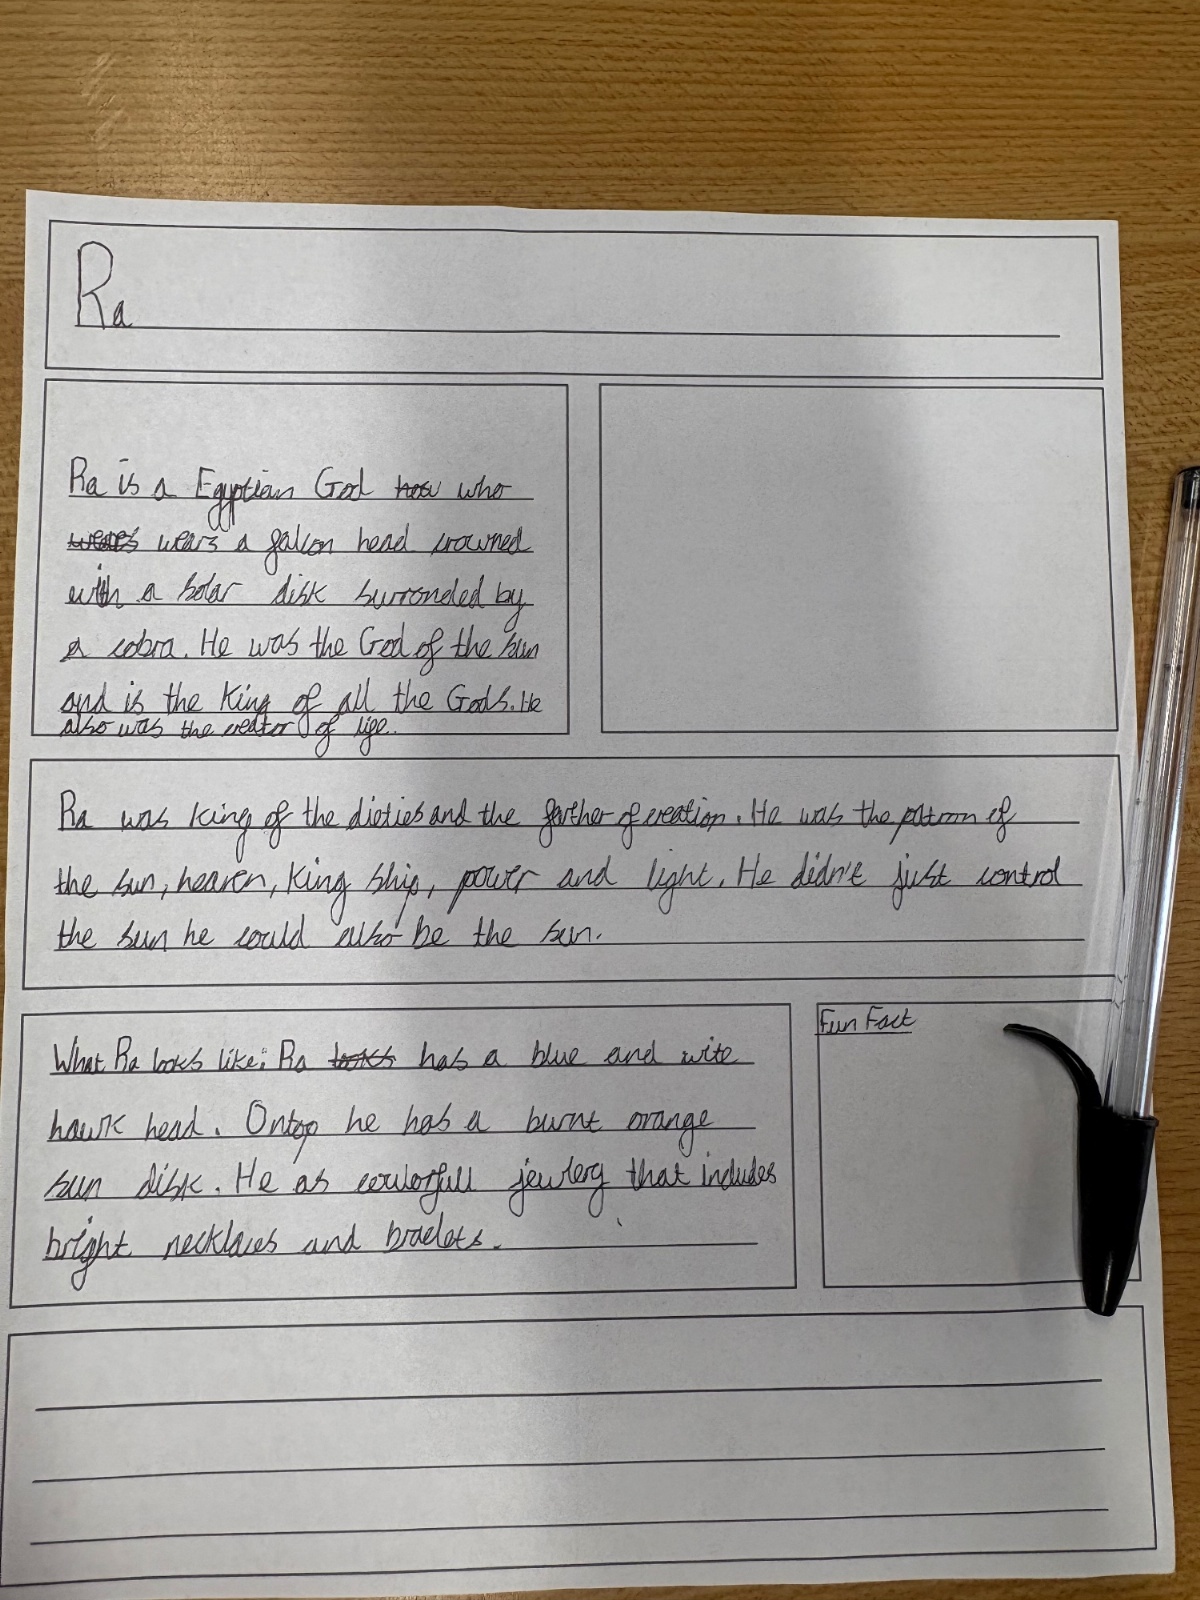 Ra
Ra is a Egyptian God how who
weares wears a falcon head crowned
with a solar disk surronded by
a cobra. He was the God of the sun
and is the King of all the Gods. He
also was the creator of life.
Ra was King of the dieties and the farther of creation. He was the patron of
the sun, heaven, King ship, power and light. He didn't just control
the sun he could also be the sun.
What Ra looks like: Ra looks has a blue and wite
hawk head. Ontop he has a burnt orange
sun disk. He as coulorfull jewlery that includes
bright necklaces and braclets.
Fun Fact